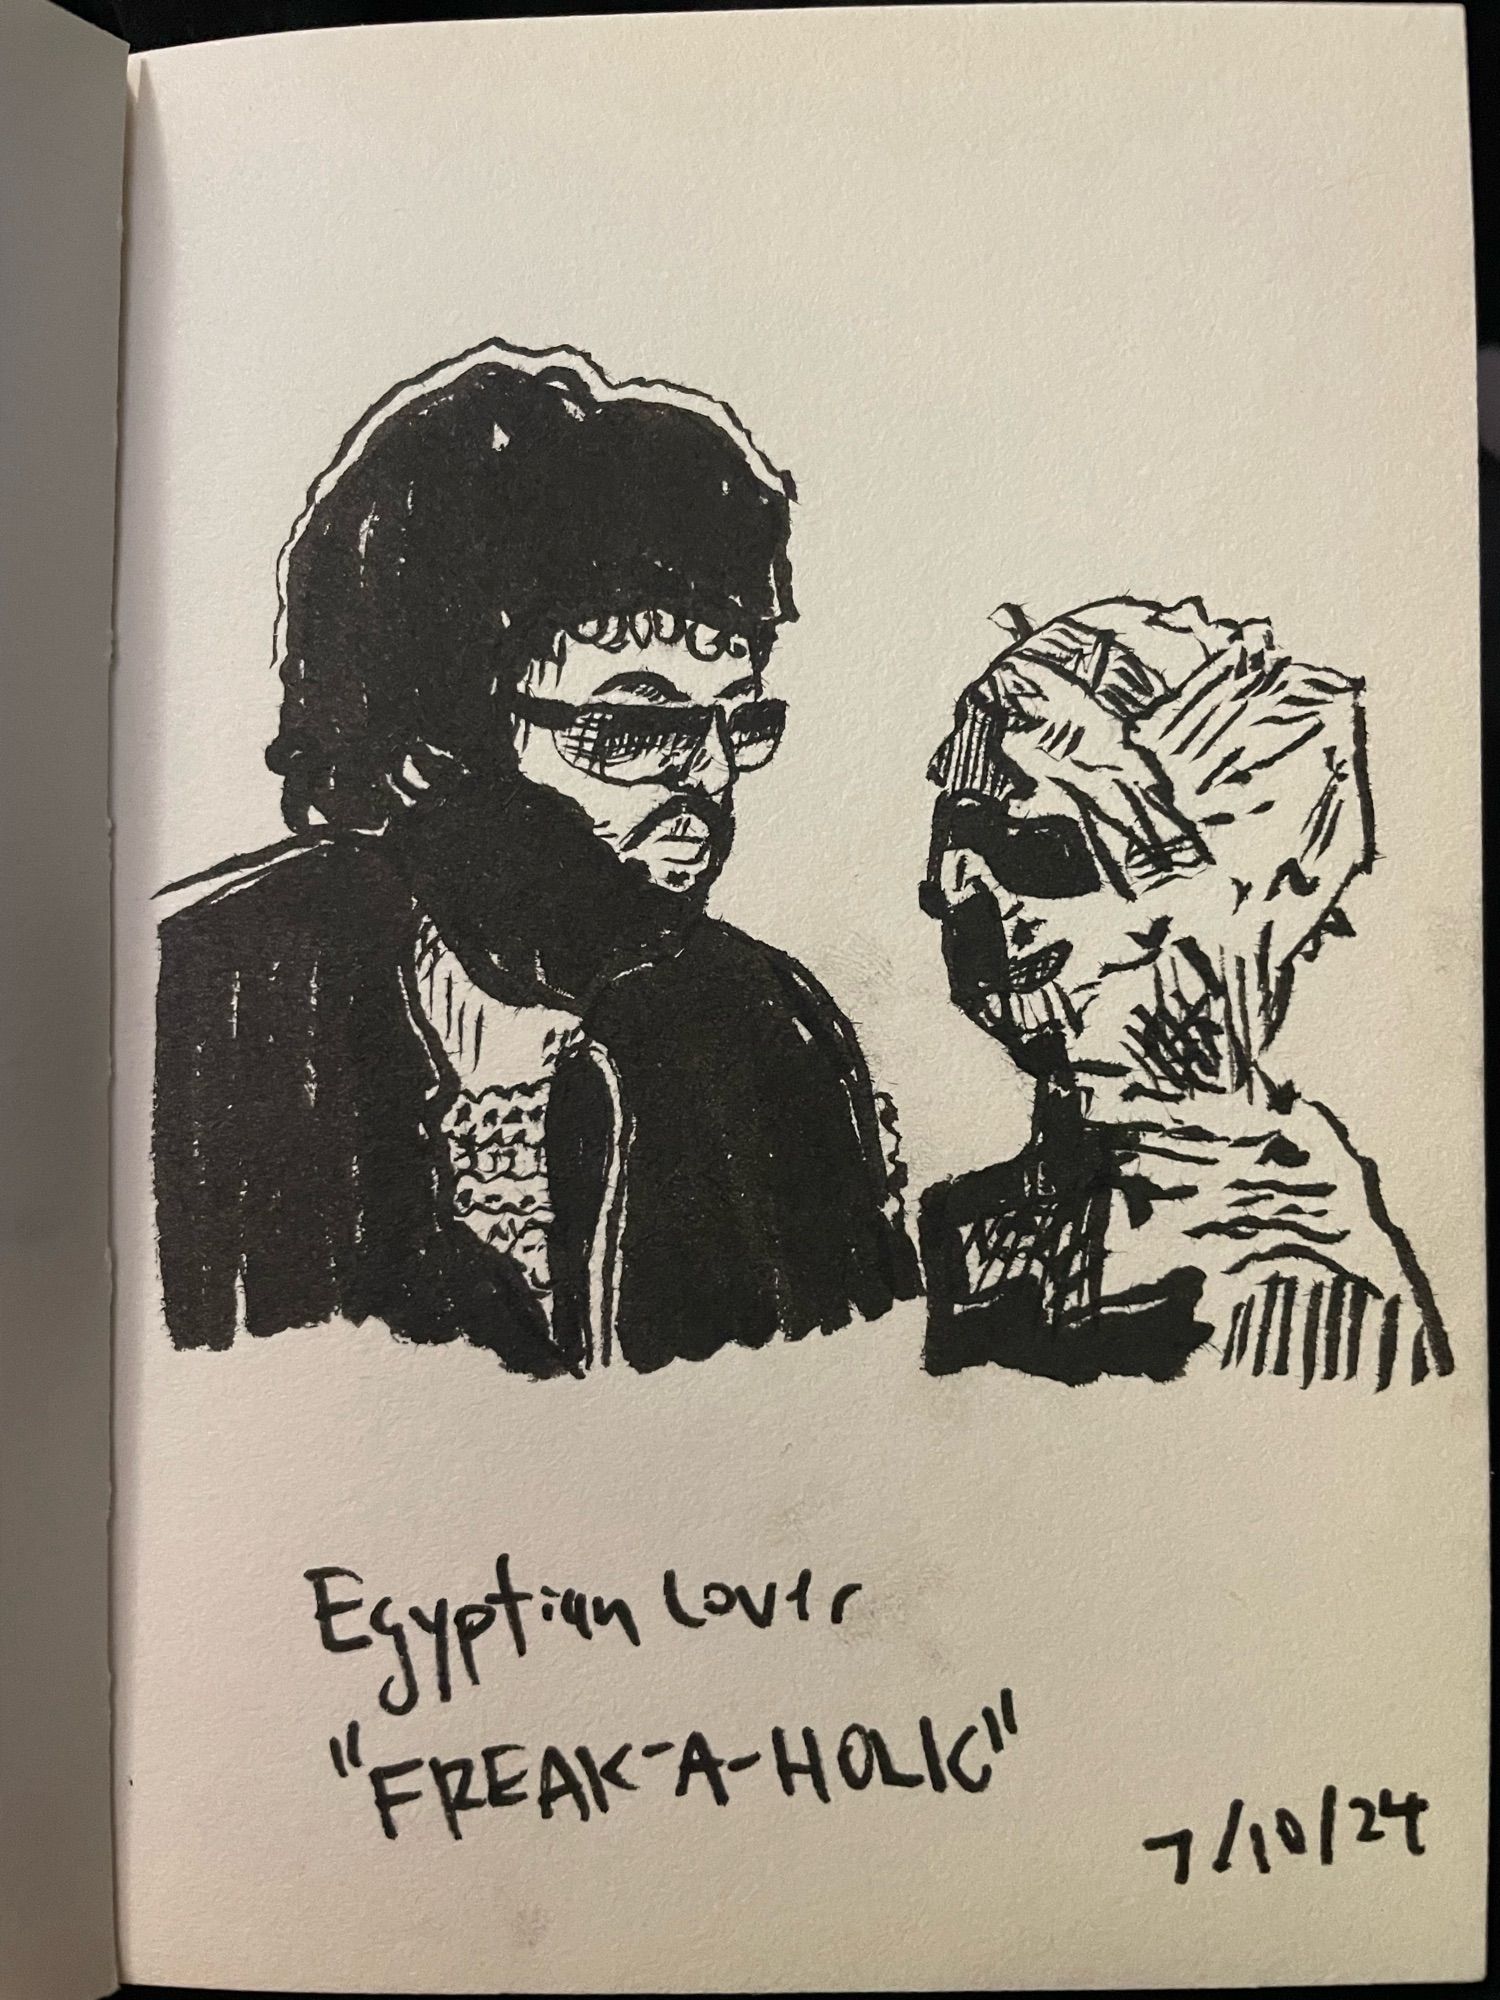 Egyptian Lover
"FREAK-A-HOLIC"
7/10/24